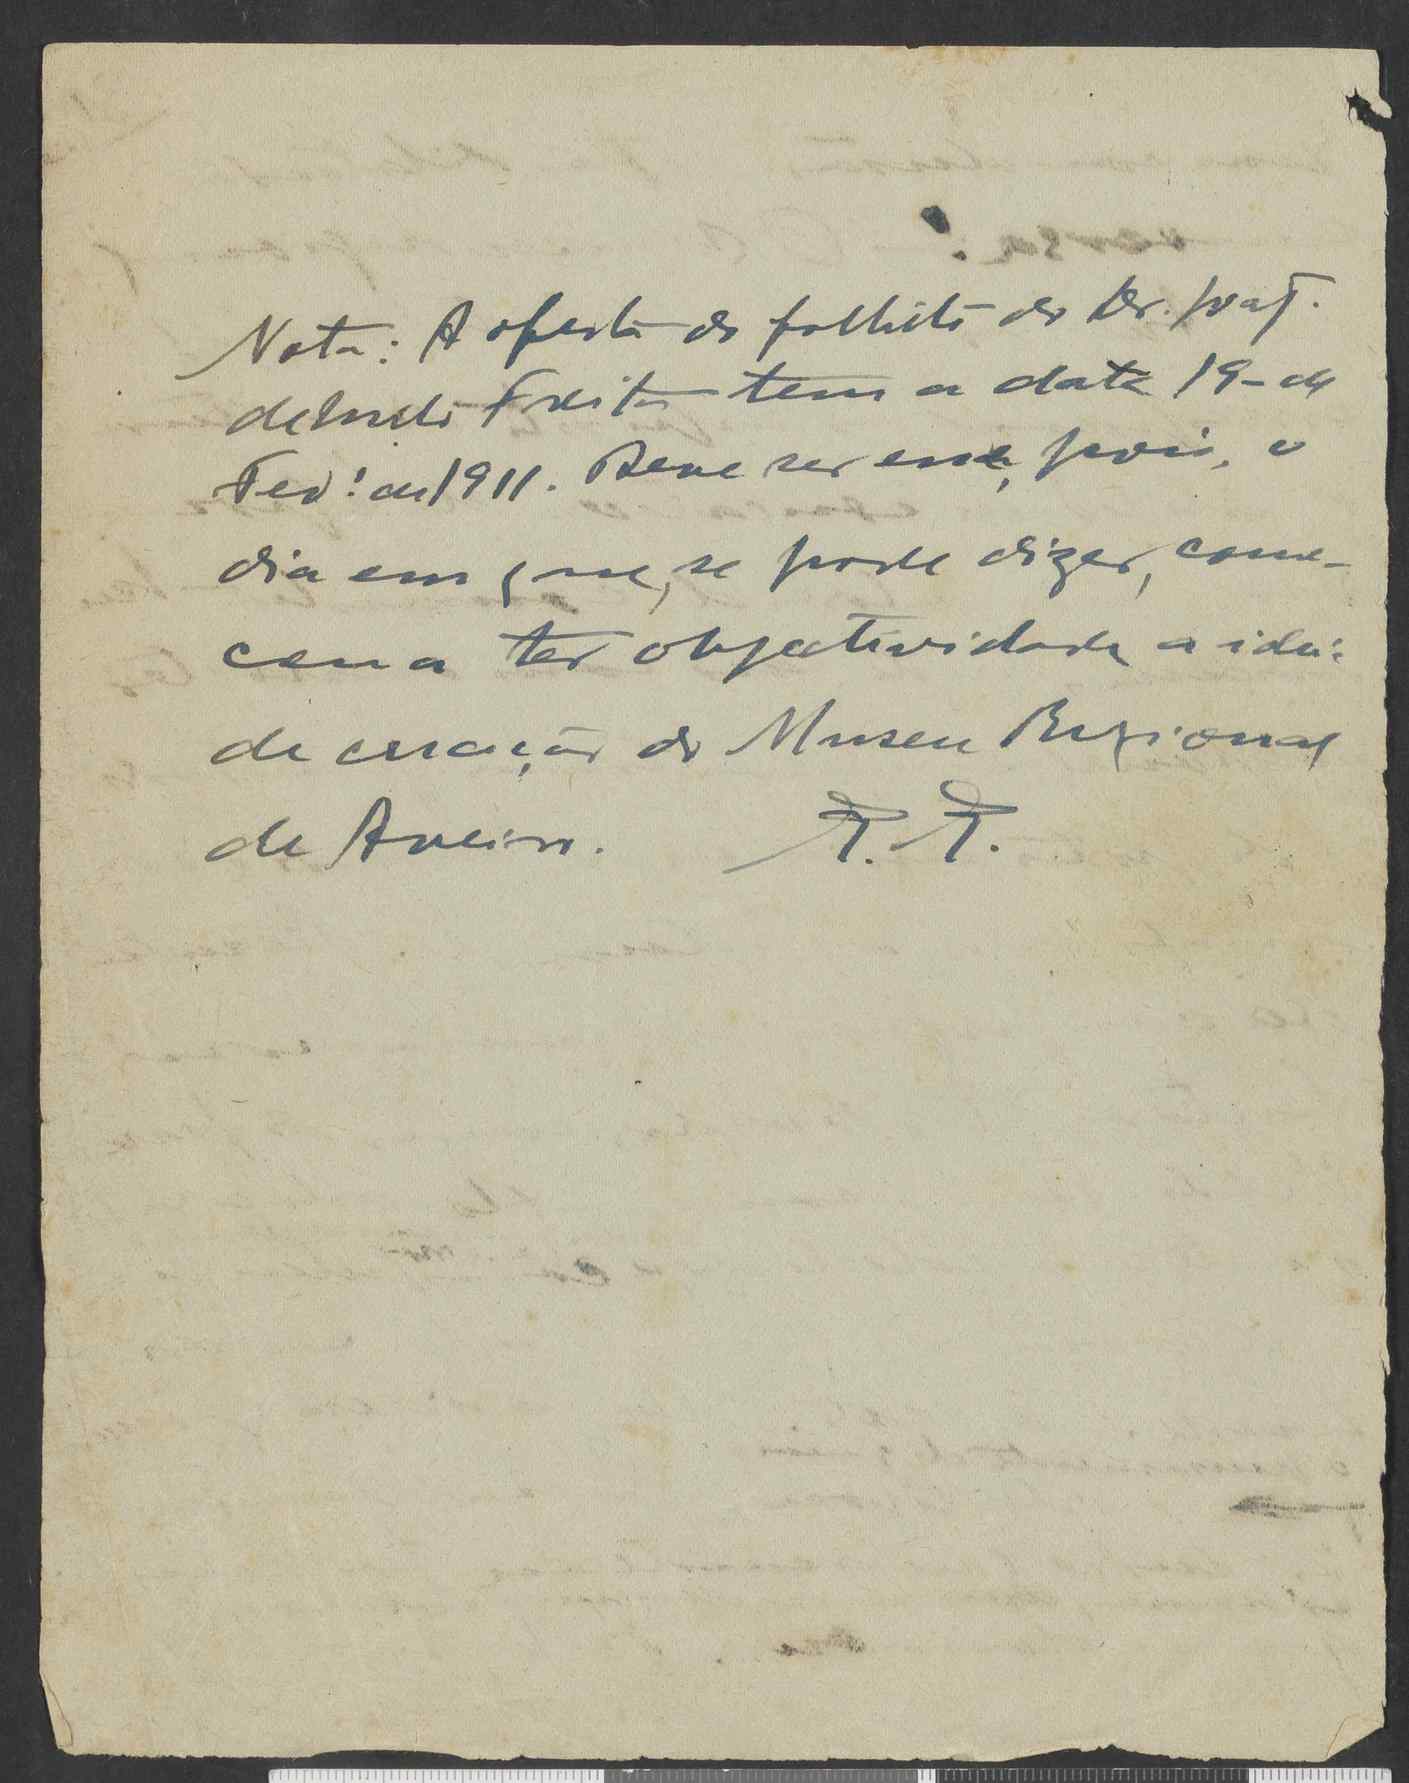 Nota: A oferta do folheto do Dr. Joaq.
de Melo Freitas tem a data 19 - de
Fev.º de 1911. Deve ser esse, pois, o
dia em que, se pode dizer, come-
çou a ter objectividade a ideia
de creação do Museu Regional
de Aveiro. F. T.